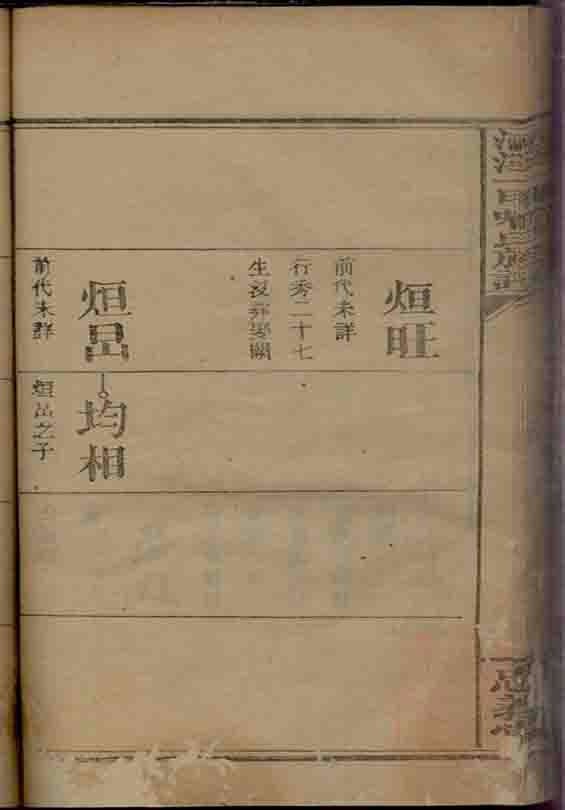 烜旺
前代未詳
行秀二十七
生歿葬娶闕
烜昌
前代未詳
均相
烜昌之子